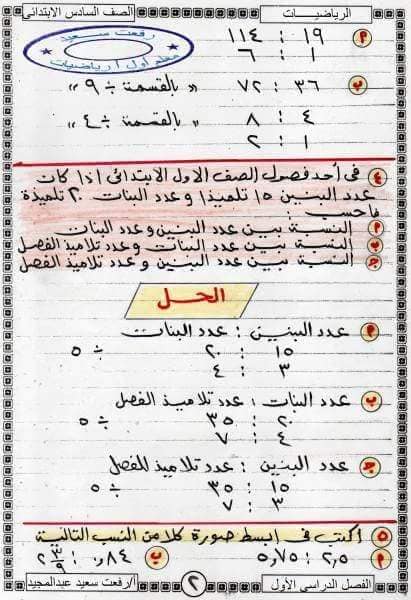 الرياضيات
الصف السادس الابتدائى
رفعت سعيد
معلم أول رياضيات
م ١٩ : ١١٤
١ : ٦
ب ٣٦ : ٧٢ " بالقسمة ÷ ٩ "
٤ : ٨ " بالقسمة ÷ ٤ "
١ : ٢
٤ فى أحد فصول الصف الاول الابتدائى اذا كان
عدد البنين ١٥ تلميذا وعدد البنات ٢٠ تلميذة
فاحسب :
م النسبة بين عدد البنين وعدد البنات
ب النسبة بين عدد البنات وعدد تلاميذ الفصل
ج النسبة بين عدد البنين وعدد تلاميذ الفصل
الحل
م عدد البنين : عدد البنات
١٥ : ٢٠ ÷ ٥
٣ : ٤
ب عدد البنات : عدد تلاميذ الفصل
٢٠ : ٣٥ ÷ ٥
٤ : ٧
ج عدد البنين : عدد تلاميذ الفصل
١٥ : ٣٥ ÷ ٥
٣ : ٧
٥ اكتب فى ابسط صورة كلا من النسب التالية
م ٢,٥ : ٥,٧٥ ب ٠,٨٤ : ٢ ٣/٩
الفصل الدراسى الأول
٢
أ/ رفعت سعيد عبدالمجيد